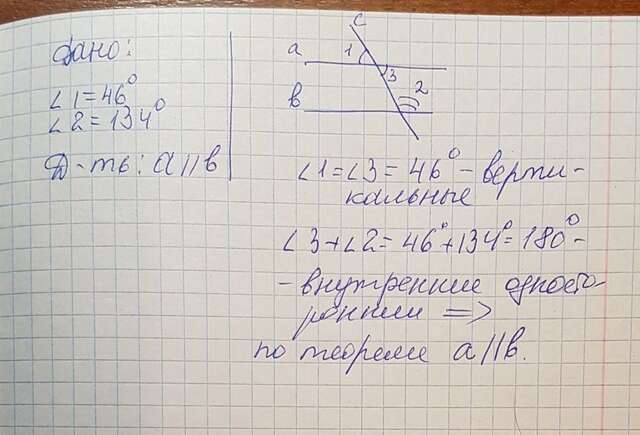 Дано:
∠1=46°
∠2=134°
Д-ть: a||b
c
a
1
3
2
b
∠1=∠3=46° - верти-
кальные
∠3+∠2=46°+134°=180° -
- внутренние односто-
ронние =>
по теореме a||b.